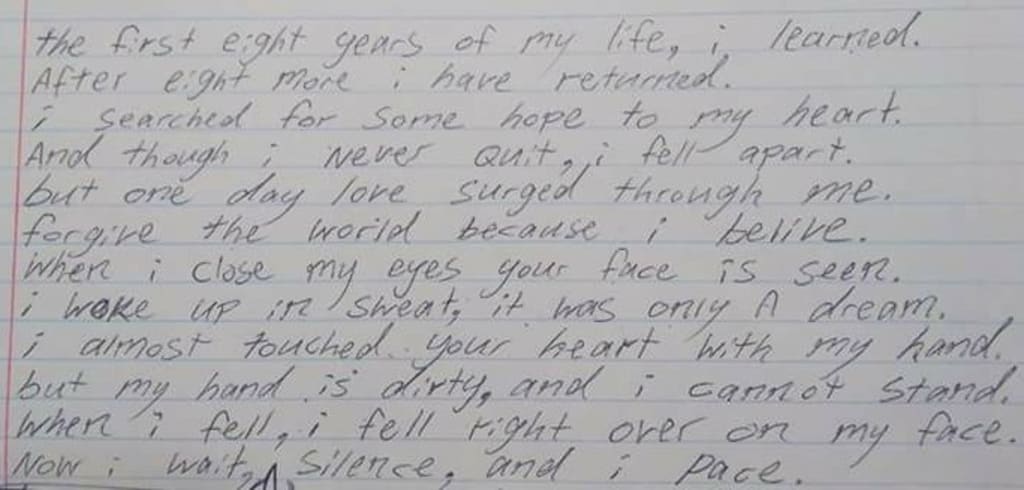 the first eight years of my life, i learned.
After eight more i have returned.
i searched for some hope to my heart.
And though i Never Quit, i fell apart.
but one day love surged through me.
forgive the world because i belive.
When i close my eyes your face is seen.
i woke up in sweat, it was only A dream.
i almost touched your heart with my hand.
but my hand is dirty, and i cannot stand.
When i fell, i fell right over on my face.
Now i wait, silence, and i pace.